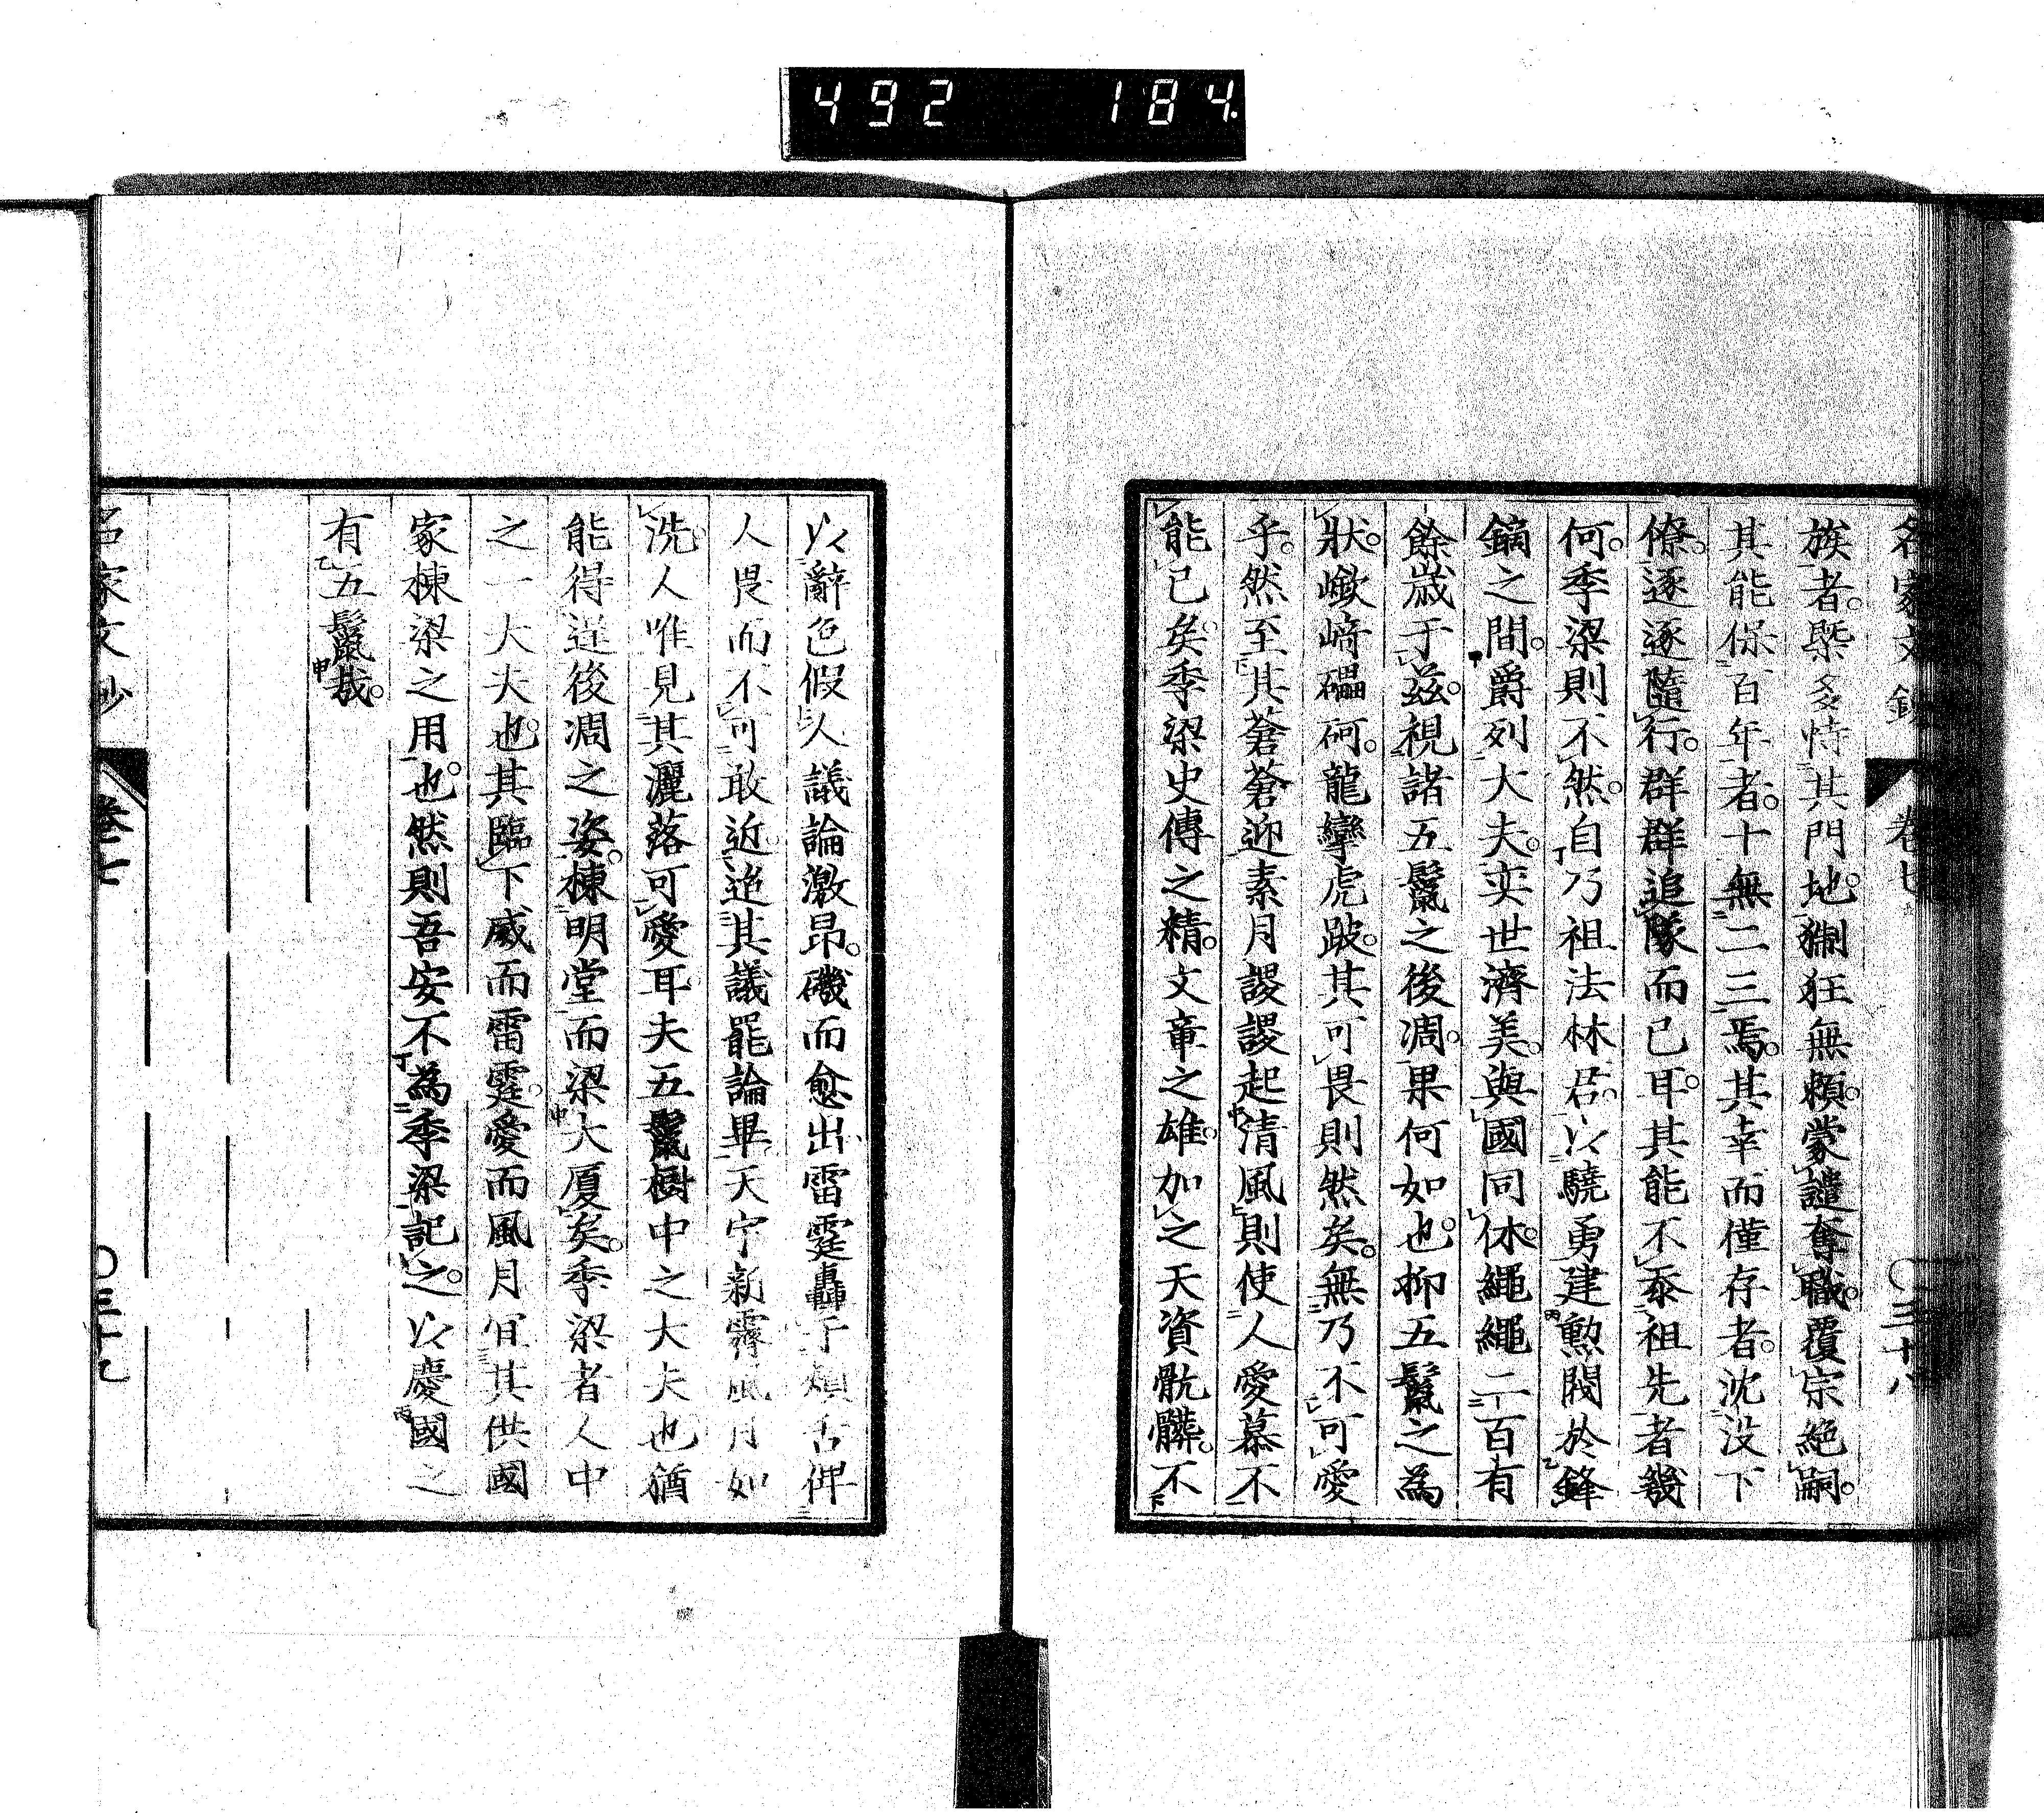 492 184.
名家文鈔 卷七 〇三十八
族者。槩多恃其門地。猘狂無頼。蒙譴奪職。覆宗絕嗣。
其能保百年者。十無二三焉。其幸而僅存者。沈没下
僚。逐逐隨行。群群追隊而已耳。其能不忝祖先者幾
何。季梁則不然。自乃祖法林君。以驍勇建勲閥於鋒
鏑之間。爵列大夫。奕世濟美。與國同休。繩繩二百有
餘歳于兹。視諸五鬣之後凋。果何如也。抑五鬣之為
狀。嶔崎礧砢。龍攣虎跛。其可畏則然矣。無乃不可愛
乎。然至其蒼蒼迎素月謖謖起清風則使人愛慕不
能已矣。季梁史傳之精。文章之雄。加之天資骯髒。不
以辭色假人議論激昂。磯而愈出雷霆轟于頰舌俾
人畏而不可敢近。迨其議罷論畢。天宇新霽風月如
洗。人唯見其灑落可愛耳。夫五鬣樹中之大夫也猶
能得逞後凋之姿。棟明堂而梁大厦矣。季梁者人中
之一大夫也。其臨下威而雷霆。愛而風月宜其供國
家棟梁之用也。然則吾安不為季梁記之。以慶國之
有五鬣哉。
名家文鈔 卷七 〇三十九